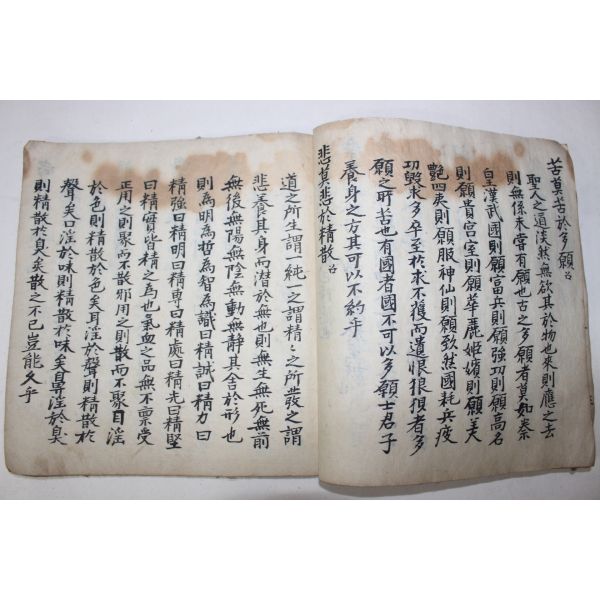 苦莫苦於多願
聖人之道淡然無欲其於物也來則應之去
則無係未嘗有願也古之多願者莫如秦
皇漢武國則願富兵則願強功則願高名
則願貴宮室則願華麗姬嬪則願美
艶四夷則願服神仙則願致然國耗兵疲
功毀求多卒至於求不獲而遺恨狼狽者多
願之所苦也有國者國不可以多願士君子
養身之方其可以不約乎
悲莫悲於精散
道之所生謂一純一之謂精〻之所發之謂
悲養其身而潜於無也則無生無死無前
無後無陽無陰無動無靜其舍於形也
則為明為哲為智為識曰精誠曰精力曰
精強曰精明曰精專曰精處曰精光曰精堅
曰精實皆精之為也氣血之品無不禀受
正用之則聚而不散邪用之則散而不聚目淫
於色則精散於色矣耳淫於聲則精散於
聲矣口淫於味則精散於味矣鼻淫於臭
則精散於臭矣散之不已豈能久乎